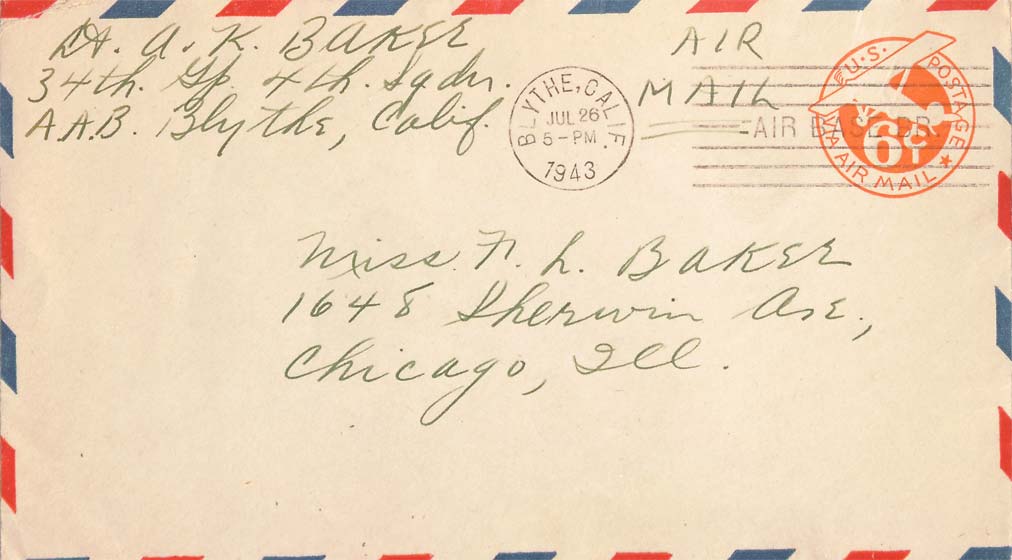 Lt. A. K. BAKER
34th. Gp. 4th. Sqdn.
A.A.B. Blythe, Calif.
AIR
MAIL
BLYTHE, CALIF.
JUL 26
5-PM
1943
AIR BASE BR.
U.S. POSTAGE
6¢
VIA AIR MAIL
Miss. F. L. BAKER
1648 Sherwin Ave.,
Chicago, Ill.